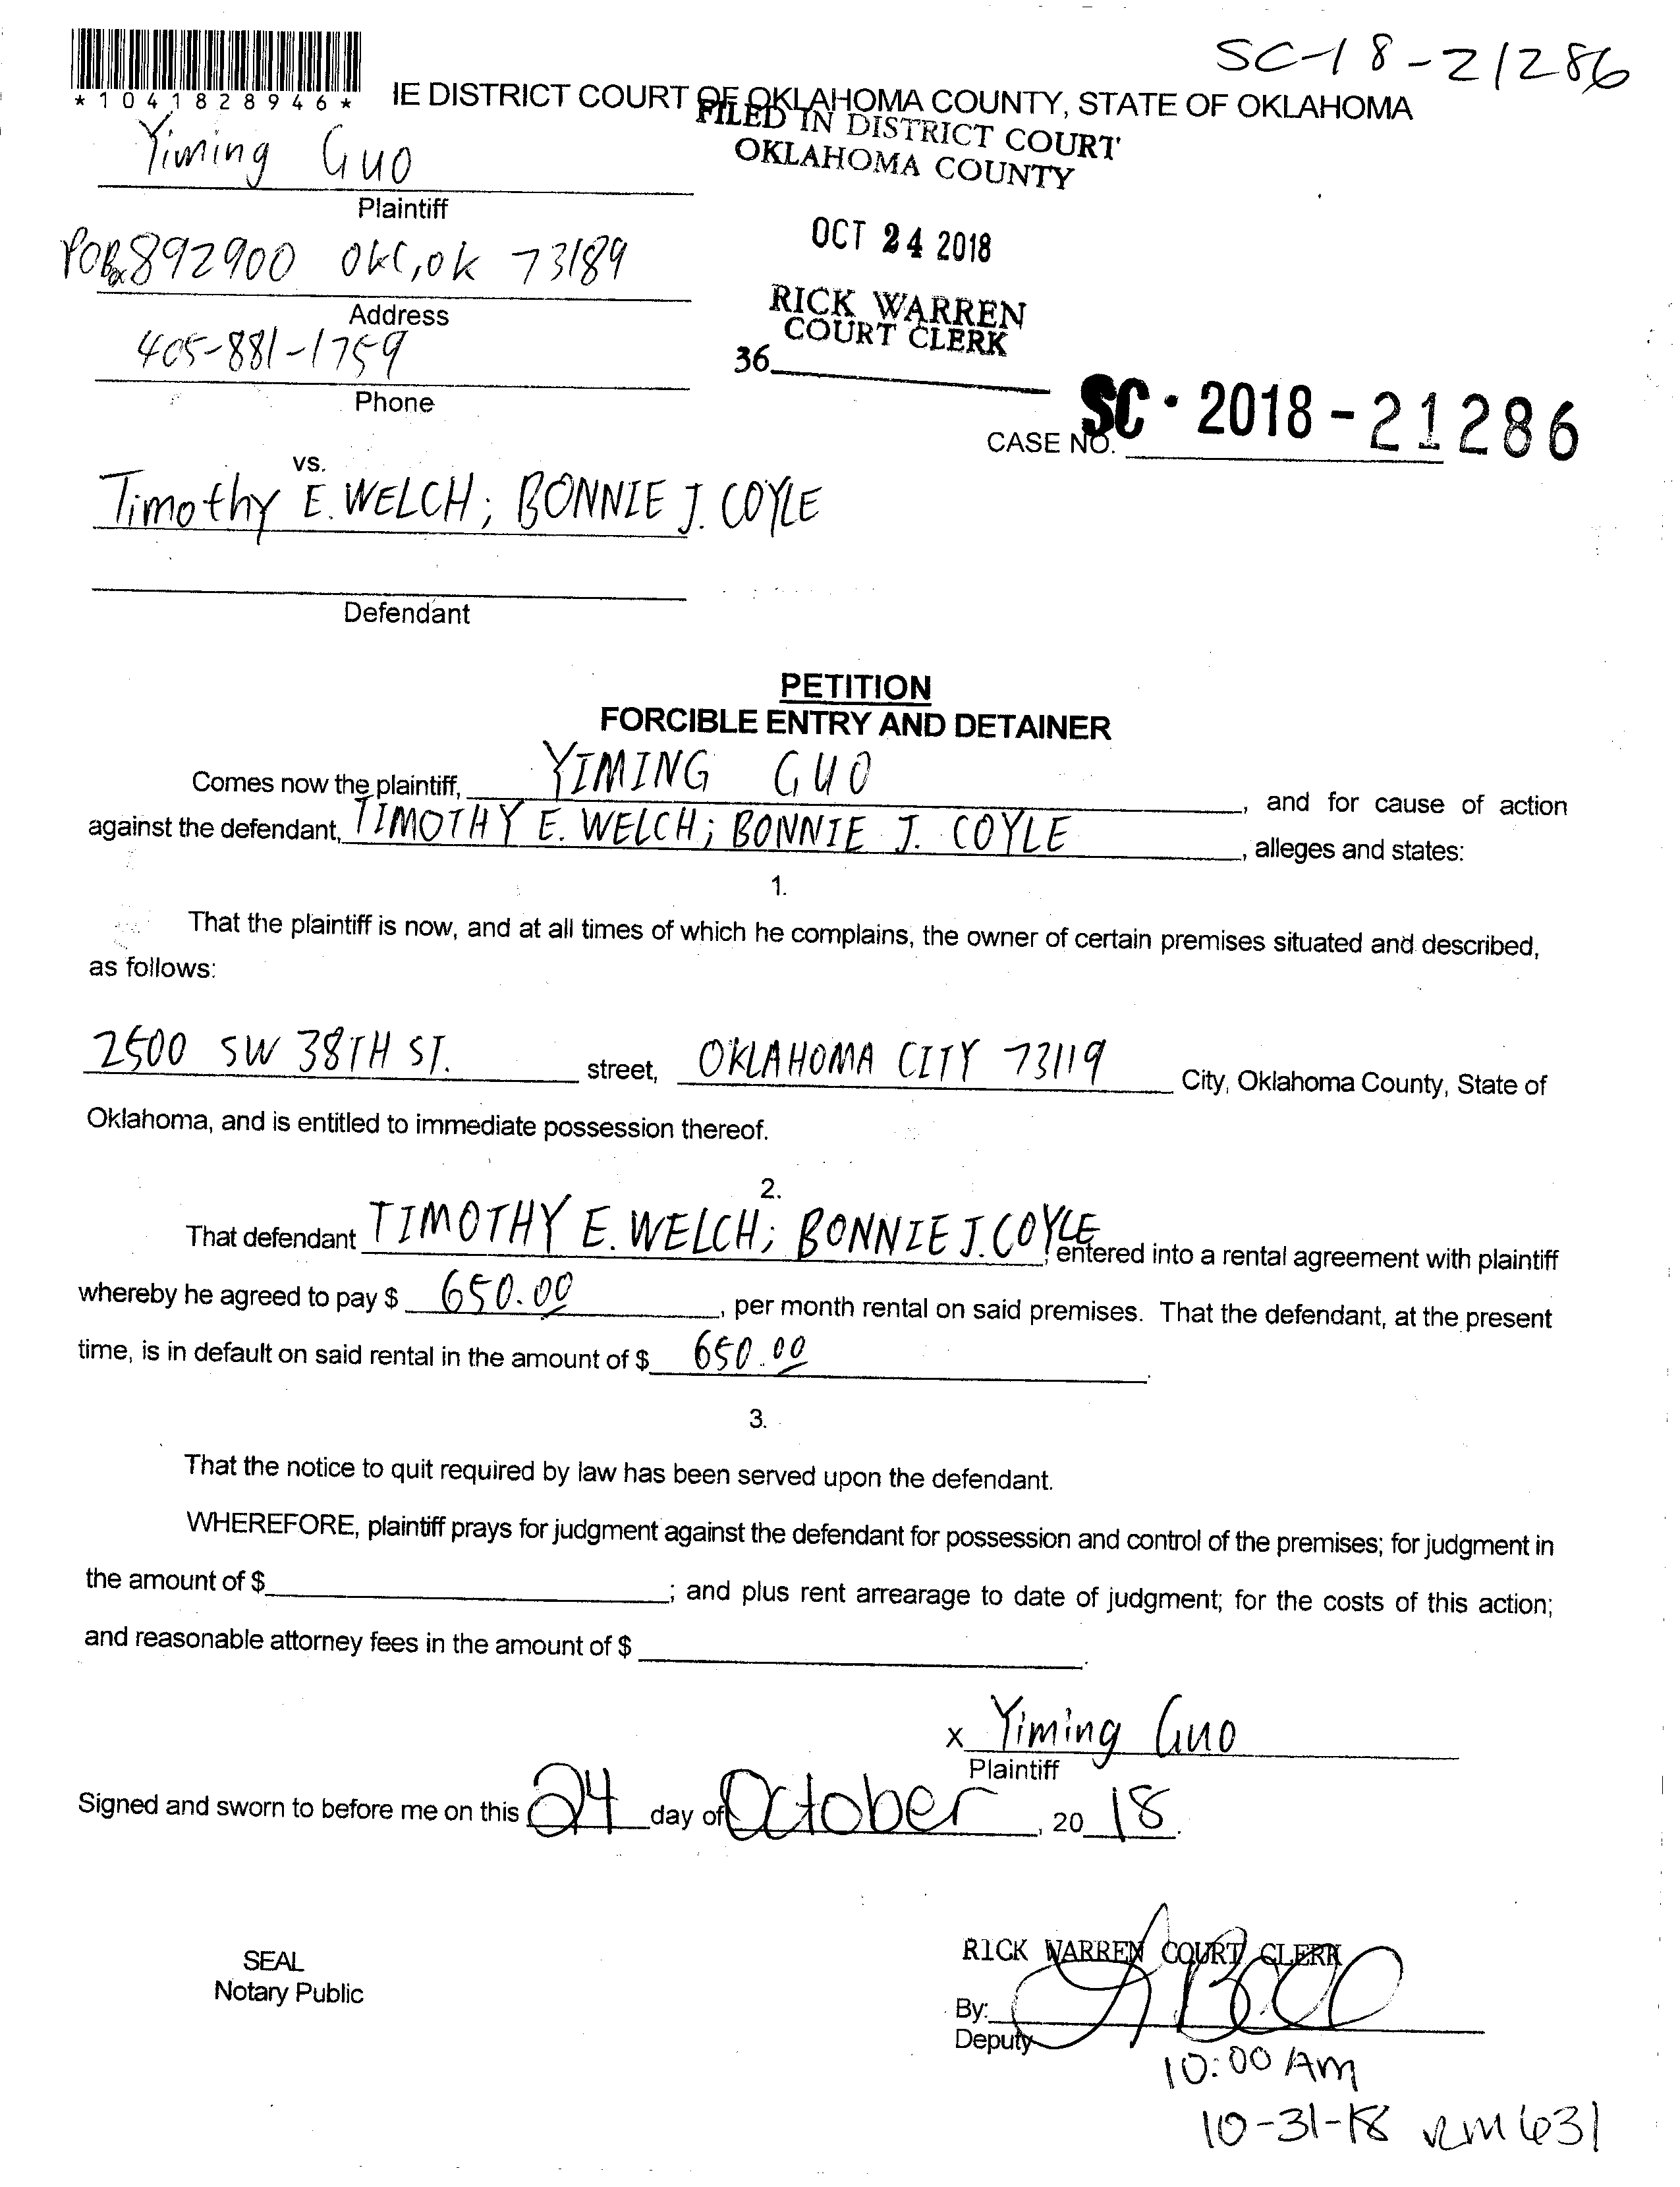 SC-18-21286
*1041828946*
IE DISTRICT COURT OF OKLAHOMA COUNTY, STATE OF OKLAHOMA
FILED IN DISTRICT COURT
OKLAHOMA COUNTY
Yiming Guo
Plaintiff
POBox 892900 OKC, OK 73189
OCT 24 2018
Address
RICK WARREN
COURT CLERK
405-881-1759
36
Phone
CASE NO. SC-2018-21286
vs.
Timothy E. WELCH; BONNIE J. COYLE
Defendant
PETITION
FORCIBLE ENTRY AND DETAINER
Comes now the plaintiff, YIMING GUO, and for cause of action
against the defendant, TIMOTHY E. WELCH; BONNIE J. COYLE, alleges and states:
1.
That the plaintiff is now, and at all times of which he complains, the owner of certain premises situated and described,
as follows:
2500 SW 38TH ST. street, OKLAHOMA CITY 73119 City, Oklahoma County, State of
Oklahoma, and is entitled to immediate possession thereof.
2.
That defendant TIMOTHY E. WELCH; BONNIE J. COYLE, entered into a rental agreement with plaintiff
whereby he agreed to pay $ 650.00, per month rental on said premises. That the defendant, at the present
time, is in default on said rental in the amount of $ 650.00.
3.
That the notice to quit required by law has been served upon the defendant.
WHEREFORE, plaintiff prays for judgment against the defendant for possession and control of the premises; for judgment in
the amount of $ ; and plus rent arrearage to date of judgment; for the costs of this action;
and reasonable attorney fees in the amount of $ .
X Yiming Guo
Plaintiff
Signed and sworn to before me on this 24 day of October, 20 18.
SEAL
Notary Public
RICK WARREN COURT CLERK
By:
Deputy
10:00 AM
10-31-18 RM 631